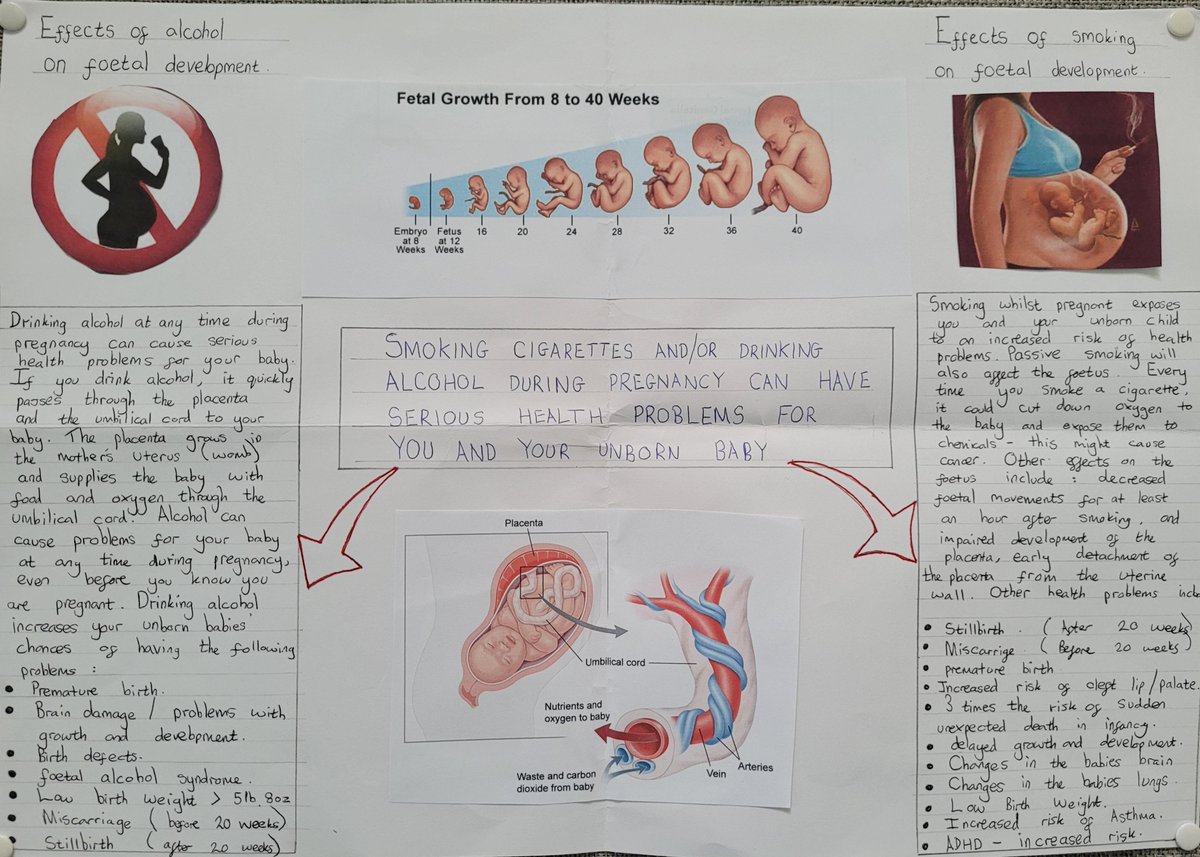 Effects of alcohol
on foetal development.
Drinking alcohol at any time during
pregnancy can cause serious
health problems for your baby.
If you drink alcohol, it quickly
passes through the placenta
and the umbilical cord to your
baby. The placenta grows in
the mother's uterus (womb)
and supplies the baby with
food and oxygen through the
umbilical cord. Alcohol can
cause problems for your baby
at any time during pregnancy,
even before you know you
are pregnant. Drinking alcohol
increases your unborn babies'
chances of having the following
problems :
• Premature birth.
• Brain damage / problems with
growth and development.
• Birth defects.
• foetal alcohol syndrome.
• Low birth weight > 5lb 8oz
• Miscarriage (before 20 weeks)
• Stillbirth (after 20 weeks)
Fetal Growth From 8 to 40 Weeks
Embryo at 8 Weeks
Fetus at 12 Weeks
16 20 24 28 32 36 40
SMOKING CIGARETTES AND/OR DRINKING
ALCOHOL DURING PREGNANCY CAN HAVE
SERIOUS HEALTH PROBLEMS FOR
YOU AND YOUR UNBORN BABY
Placenta
Umbilical cord
Nutrients and
oxygen to baby
Waste and carbon
dioxide from baby
Vein
Arteries
Effects of smoking
on foetal development.
Smoking whilst pregnant exposes
you and your unborn child
to an increased risk of health
problems. Passive smoking will
also affect the foetus. Every
time you smoke a cigarette,
it could cut down oxygen to
the baby and expose them to
chemicals - this might cause
cancer. Other effects on the
foetus include : decreased
foetal movements for at least
an hour after smoking, and
impaired development of the
placenta, early detachment of
the placenta from the uterine
wall. Other health problems inclu
• Stillbirth. (After 20 weeks)
• Miscarrige (Before 20 weeks)
• premature birth
• Increased risk of cleft lip/palate.
• 3 times the risk of sudden
unexpected death in infancy.
• delayed growth and development.
• Changes in the babies brain
• Changes in the babies lungs.
• Low Birth Weight.
• Increased risk of Asthma.
• ADHD - increased risk.